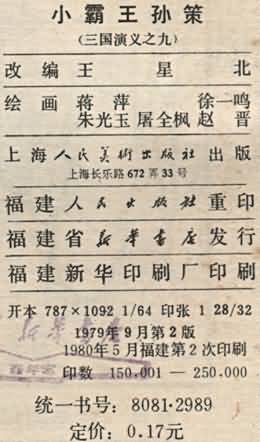 小霸王孙策
(三国演义之九)
改编 王星北
绘画 蒋萍 徐一鸣
朱光玉 屠全枫 赵晋
上海人民美術出版社出版
上海长乐路672弄33号
福建人民出版社重印
福建省新华書店发行
福建新华印刷厂印刷
开本 787×1092 1/64 印张 1 28/32
1979年9月第2版
1980年5月福建第2次印刷
印数 150,001—250,000
统一书号：8081·2989
定价：0.17元